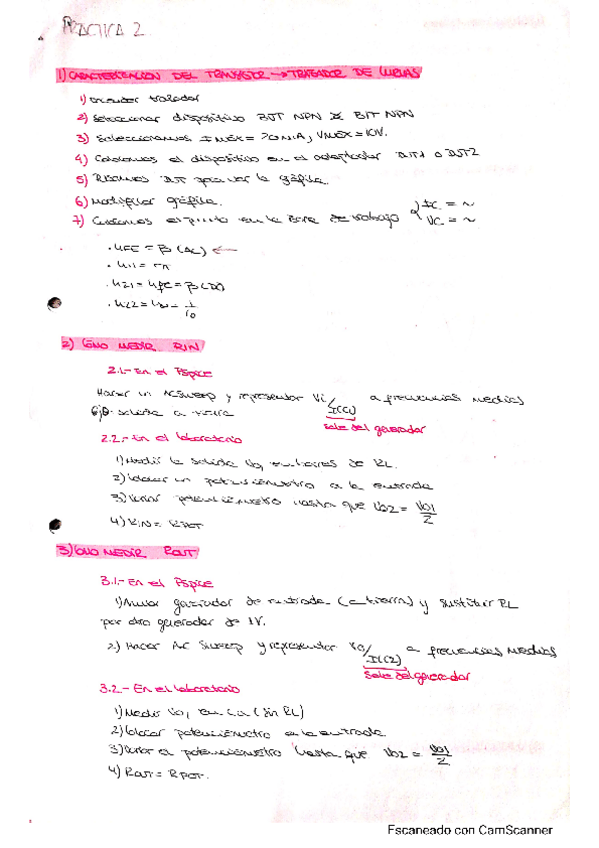 PRACTICA 2
1) CARACTERIZACION DEL TRANSISTOR → TRAZADOR DE CURVAS
1) Encender trazador
2) Seleccionar dispositivo BJT NPN BJT NPN
3) Seleccionamos IMÁX = 20mA, VMÁX = 10V.
4) Colocamos el dispositivo en el adaptador DUT1 o DUT2
5) Pulsamos DUT para ver la gráfica.
6) Modificar gráfica.
7) el punto en la de trabajo { IC = ~
VC = ~
· hFE = β (AC) ←
· h11 = rπ
· h21 = hFE = β (DC)
· h22 = = 1/ro
2) Cómo MEDIR RIN
2.1.- En el Pspice
Hacer un ACSweep y representar Vi/I(C1) a frecuencias medias
salida a tierra
sale del generador
2.2.- En el laboratorio
1) Medir la salida Vo, en bornes de RL.
2) Colocar un potenciómetro a la entrada
3) Variar potenciómetro hasta que Vo2 = Vo1/2
4) RIN = RPOT
3) Cómo MEDIR ROUT
3.1.- En el Pspice
1) Anular generador de entrada (a tierra) y sustituir RL
por otro generador de 1V.
2) Hacer AC Sweep y representar Vo/I(C2) a frecuencias medias
sale del generador
3.2.- En el laboratorio
1) Medir Vo, en c.a (sin RL)
2) Colocar potenciómetro en la entrada
3) Variar el potenciómetro hasta que Vo2 = Vo1/2
4) ROUT = RPOT.
Escaneado con CamScanner